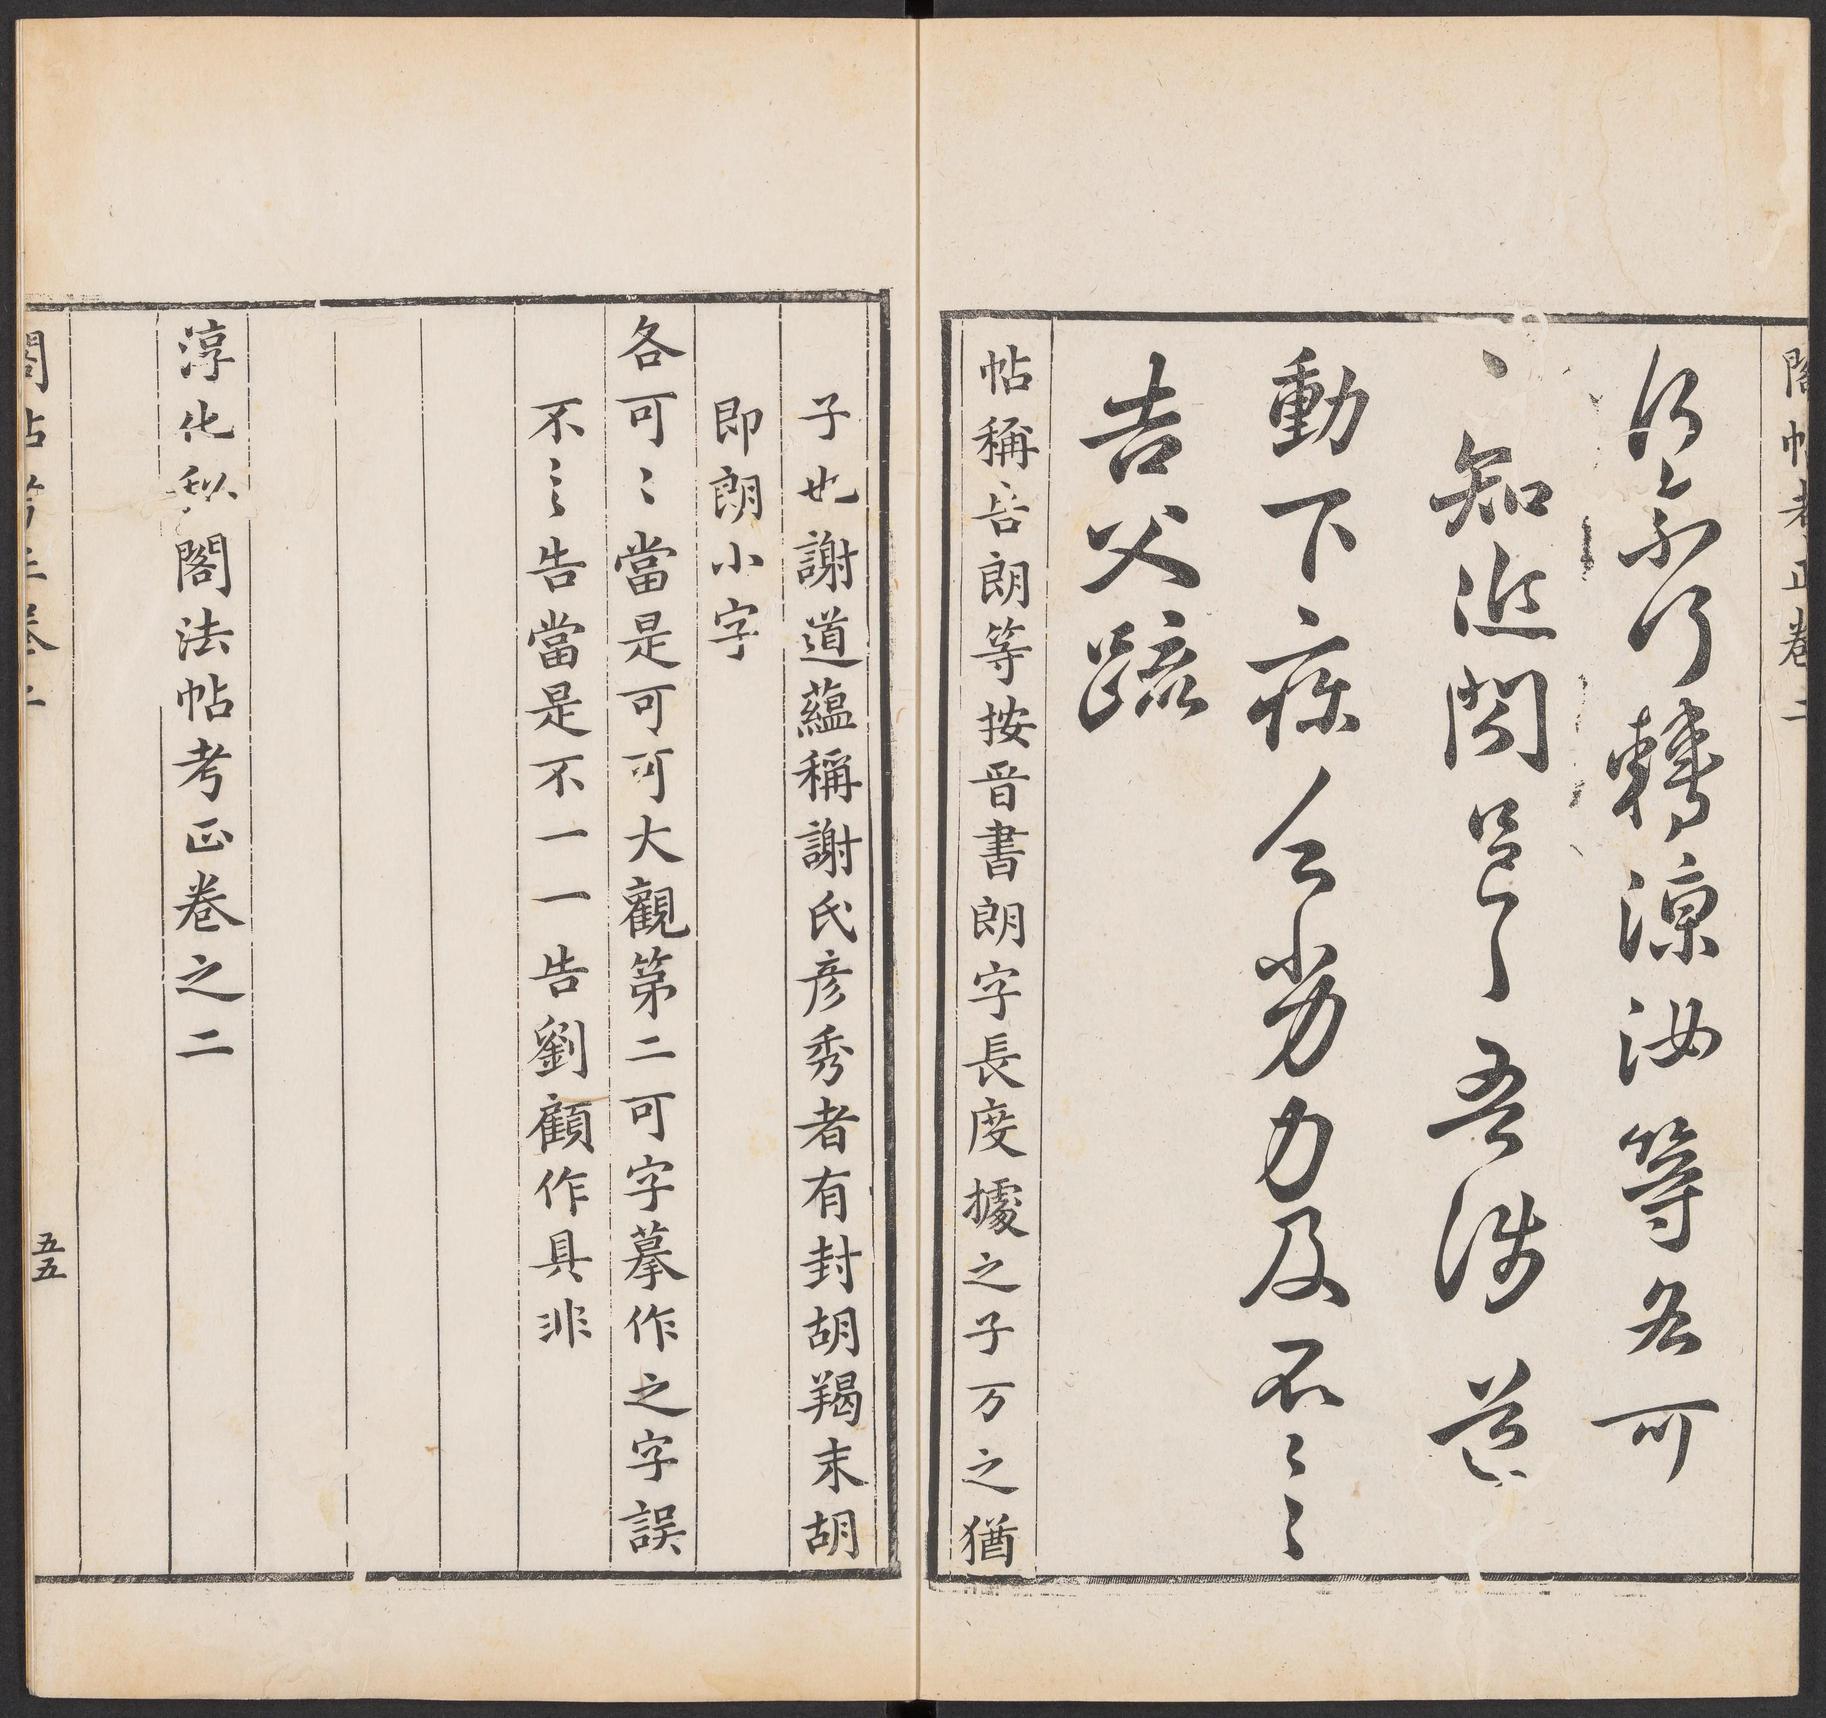 閣帖考正卷二
轉涼汝等各可
〻知近問邑邑吾涉道
動下疾乏劣力及不〻〻
告父疏
帖稱告朗等按晉書朗字長度據之子万之猶
子也謝道蘊稱謝氏彦秀者有封胡羯末胡
即朗小字
各可〻當是可可大觀第二可字摹作之字誤
不〻告當是不一一告劉顧作具非
淳化秘閣法帖考正卷之二
閣帖考正卷二
五五